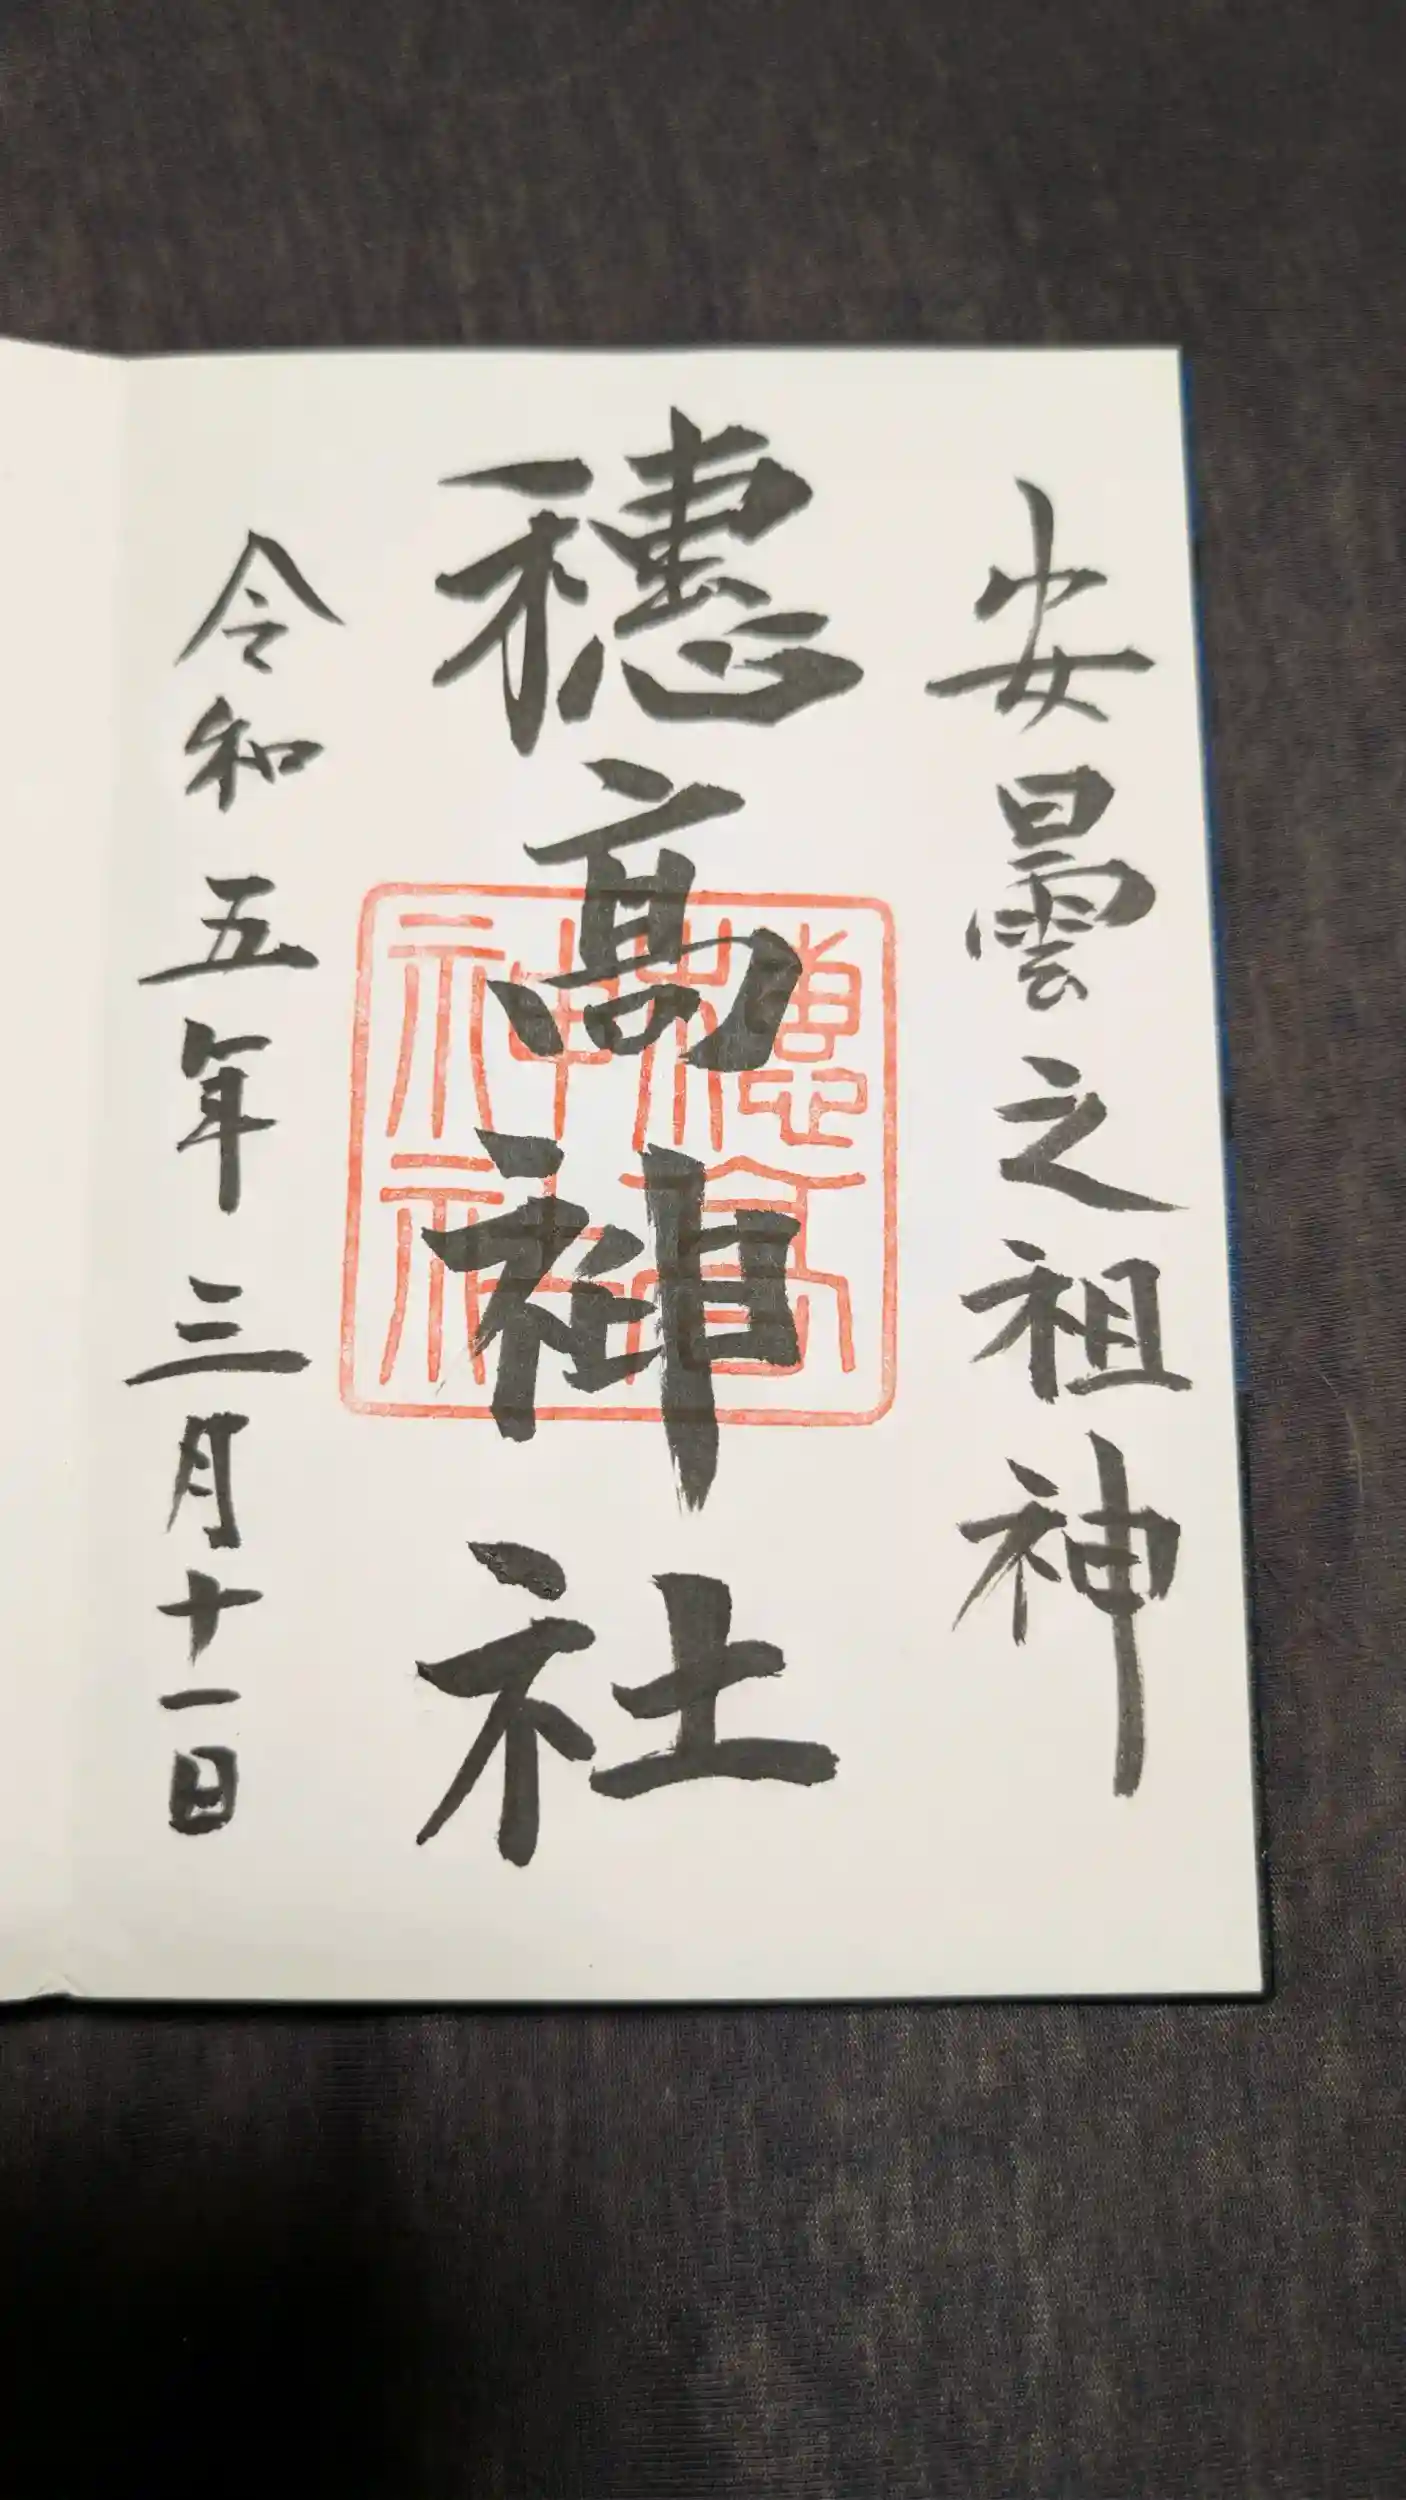 安曇之祖神
穂髙神社
穂高神社
令和五年三月十一日